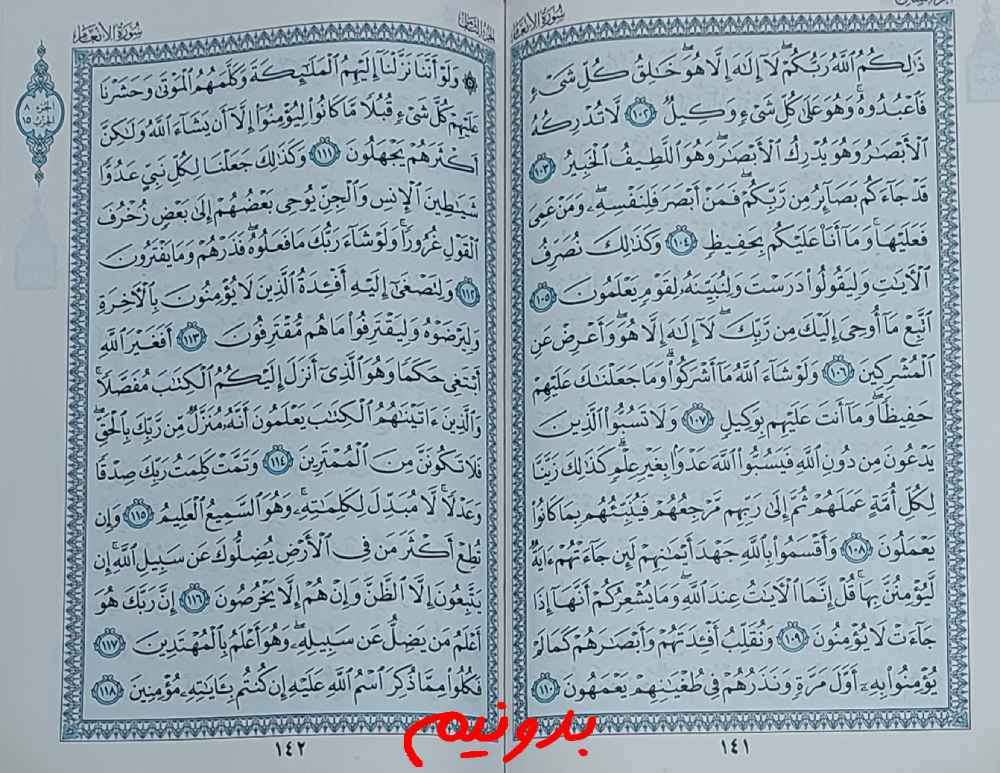 سورة الأنعام
ذَٰلِكُمُ ٱللَّهُ رَبُّكُمْ ۖ لَآ إِلَٰهَ إِلَّا هُوَ ۖ خَٰلِقُ كُلِّ شَىْءٍ
فَٱعْبُدُوهُ ۚ وَهُوَ عَلَىٰ كُلِّ شَىْءٍ وَكِيلٌ ١٠٢ لَّا تُدْرِكُهُ
ٱلْأَبْصَٰرُ وَهُوَ يُدْرِكُ ٱلْأَبْصَٰرَ ۖ وَهُوَ ٱللَّطِيفُ ٱلْخَبِيرُ ١٠٣
قَدْ جَآءَكُم بَصَآئِرُ مِن رَّبِّكُمْ ۖ فَمَنْ أَبْصَرَ فَلِنَفْسِهِۦ ۖ وَمَنْ عَمِىَ
فَعَلَيْهَا ۚ وَمَآ أَنَا۠ عَلَيْكُم بِحَفِيظٍ ١٠٤ وَكَذَٰلِكَ نُصَرِّفُ
ٱلْءَايَٰتِ وَلِيَقُولُوا۟ دَرَسْتَ وَلِنُبَيِّنَهُۥ لِقَوْمٍ يَعْلَمُونَ ١٠٥
ٱتَّبِعْ مَآ أُوحِىَ إِلَيْكَ مِن رَّبِّكَ ۖ لَآ إِلَٰهَ إِلَّا هُوَ ۖ وَأَعْرِضْ عَنِ
ٱلْمُشْرِكِينَ ١٠٦ وَلَوْ شَآءَ ٱللَّهُ مَآ أَشْرَكُوا۟ ۗ وَمَا جَعَلْنَٰكَ عَلَيْهِمْ
حَفِيظًا ۖ وَمَآ أَنتَ عَلَيْهِم بِوَكِيلٍ ١٠٧ وَلَا تَسُبُّوا۟ ٱلَّذِينَ
يَدْعُونَ مِن دُونِ ٱللَّهِ فَيَسُبُّوا۟ ٱللَّهَ عَدْوًۢا بِغَيْرِ عِلْمٍ ۗ كَذَٰلِكَ زَيَّنَّا
لِكُلِّ أُمَّةٍ عَمَلَهُمْ ثُمَّ إِلَىٰ رَبِّهِم مَّرْجِعُهُمْ فَيُنَبِّئُهُم بِمَا كَانُوا۟
يَعْمَلُونَ ١٠٨ وَأَقْسَمُوا۟ بِٱللَّهِ جَهْدَ أَيْمَٰنِهِمْ لَئِن جَآءَتْهُمْ ءَايَةٌ
لَّيُؤْمِنُنَّ بِهَا ۚ قُلْ إِنَّمَا ٱلْءَايَٰتُ عِندَ ٱللَّهِ ۖ وَمَا يُشْعِرُكُمْ أَنَّهَآ إِذَا
جَآءَتْ لَا يُؤْمِنُونَ ١٠٩ وَنُقَلِّبُ أَفْـِٔدَتَهُمْ وَأَبْصَٰرَهُمْ كَمَا لَمْ
يُؤْمِنُوا۟ بِهِۦٓ أَوَّلَ مَرَّةٍ وَنَذَرُهُمْ فِى طُغْيَٰنِهِمْ يَعْمَهُونَ ١١٠
١٤١
سورة الأنعام
الجزء ٨
الحزب ١٥
۞ وَلَوْ أَنَّنَا نَزَّلْنَآ إِلَيْهِمُ ٱلْمَلَٰٓئِكَةَ وَكَلَّمَهُمُ ٱلْمَوْتَىٰ وَحَشَرْنَا
عَلَيْهِمْ كُلَّ شَىْءٍ قُبُلًا مَّا كَانُوا۟ لِيُؤْمِنُوٓا۟ إِلَّآ أَن يَشَآءَ ٱللَّهُ وَلَٰكِنَّ
أَكْثَرَهُمْ يَجْهَلُونَ ١١١ وَكَذَٰلِكَ جَعَلْنَا لِكُلِّ نَبِىٍّ عَدُوًّا
شَيَٰطِينَ ٱلْإِنسِ وَٱلْجِنِّ يُوحِى بَعْضُهُمْ إِلَىٰ بَعْضٍ زُخْرُفَ
ٱلْقَوْلِ غُرُورًا ۚ وَلَوْ شَآءَ رَبُّكَ مَا فَعَلُوهُ ۖ فَذَرْهُمْ وَمَا يَفْتَرُونَ
١١٢ وَلِتَصْغَىٰٓ إِلَيْهِ أَفْـِٔدَةُ ٱلَّذِينَ لَا يُؤْمِنُونَ بِٱلْءَاخِرَةِ
وَلِيَرْضَوْهُ وَلِيَقْتَرِفُوا۟ مَا هُم مُّقْتَرِفُونَ ١١٣ أَفَغَيْرَ ٱللَّهِ
أَبْتَغِى حَكَمًا وَهُوَ ٱلَّذِىٓ أَنزَلَ إِلَيْكُمُ ٱلْكِتَٰبَ مُفَصَّلًا ۚ
وَٱلَّذِينَ ءَاتَيْنَٰهُمُ ٱلْكِتَٰبَ يَعْلَمُونَ أَنَّهُۥ مُنَزَّلٌ مِّن رَّبِّكَ بِٱلْحَقِّ ۖ
فَلَا تَكُونَنَّ مِنَ ٱلْمُمْتَرِينَ ١١٤ وَتَمَّتْ كَلِمَتُ رَبِّكَ صِدْقًا
وَعَدْلًا ۚ لَّا مُبَدِّلَ لِكَلِمَٰتِهِۦ ۚ وَهُوَ ٱلسَّمِيعُ ٱلْعَلِيمُ ١١٥ وَإِن
تُطِعْ أَكْثَرَ مَن فِى ٱلْأَرْضِ يُضِلُّوكَ عَن سَبِيلِ ٱللَّهِ ۚ إِن
يَتَّبِعُونَ إِلَّا ٱلظَّنَّ وَإِنْ هُمْ إِلَّا يَخْرُصُونَ ١١٦ إِنَّ رَبَّكَ هُوَ
أَعْلَمُ مَن يَضِلُّ عَن سَبِيلِهِۦ ۖ وَهُوَ أَعْلَمُ بِٱلْمُهْتَدِينَ ١١٧
فَكُلُوا۟ مِمَّا ذُكِرَ ٱسْمُ ٱللَّهِ عَلَيْهِ إِن كُنتُم بِـَٔايَٰتِهِۦ مُؤْمِنِينَ ١١٨
١٤٢
بدونیم